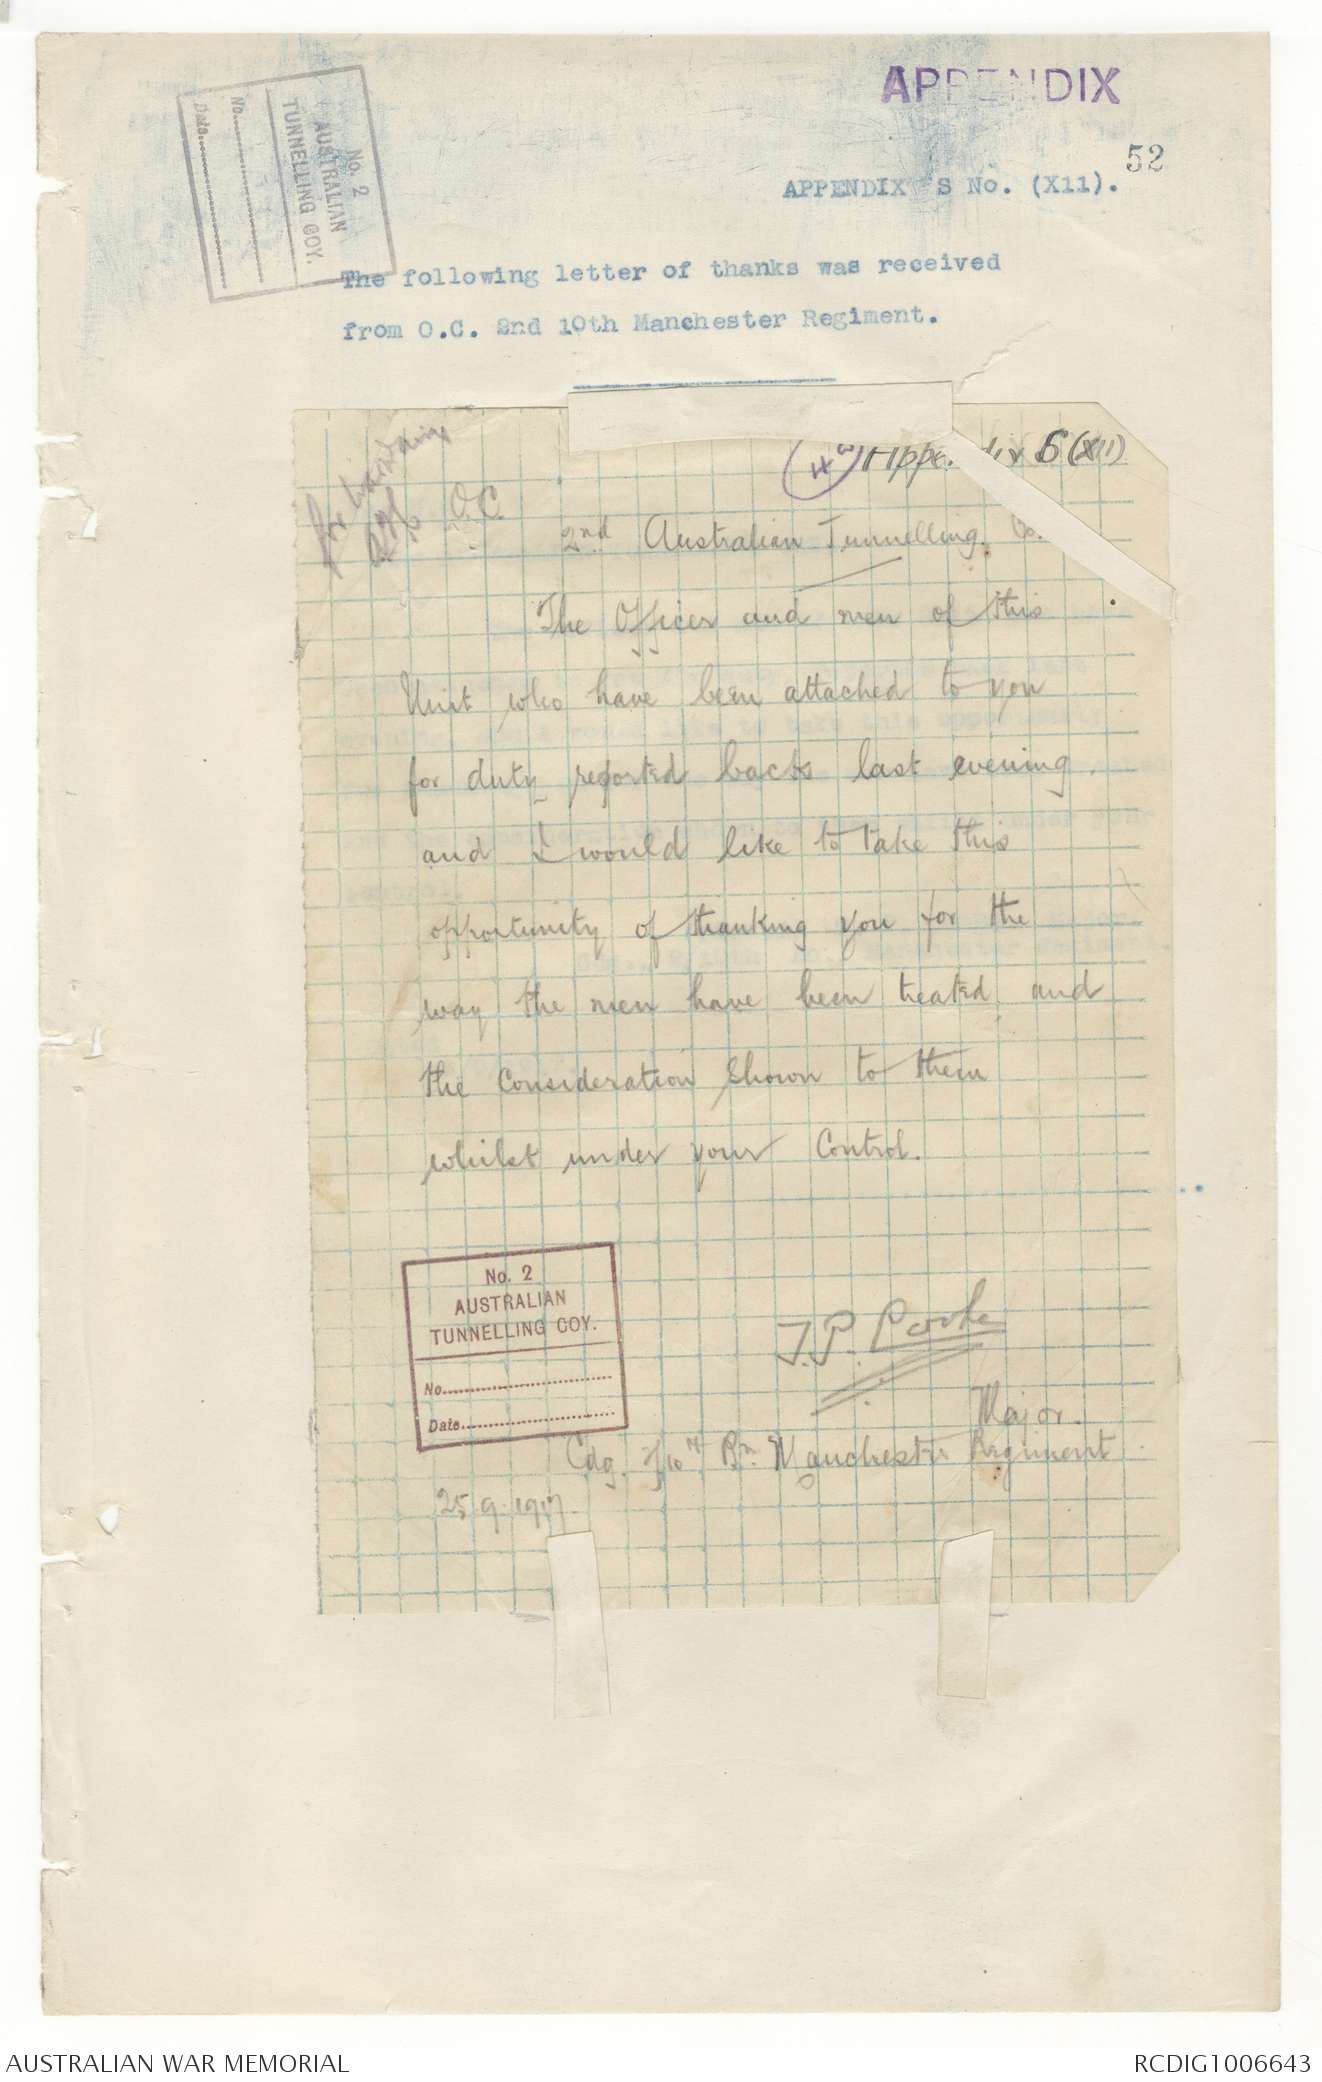 APPENDIX
52
No. 2
AUSTRALIAN
TUNNELLING COY.
No.
Date
APPENDIX S No. (X11).
The following letter of thanks was received
from O.C. 2nd 10th Manchester Regiment.
Appendix S (XII)
O.C.
2nd Australian Tunnelling Co.
The Officer and men of this
Unit who have been attached to you
for duty reported back last evening
and I would like to take this
opportunity of thanking you for the
way the men have been treated and
the Consideration shown to them
whilst under your Control.
No. 2
AUSTRALIAN
TUNNELLING COY.
No.
Date
Major.
Cdg. 2/10th Bn. Manchester Regiment
25.9.1917.
AUSTRALIAN WAR MEMORIAL
RCDIG1006643